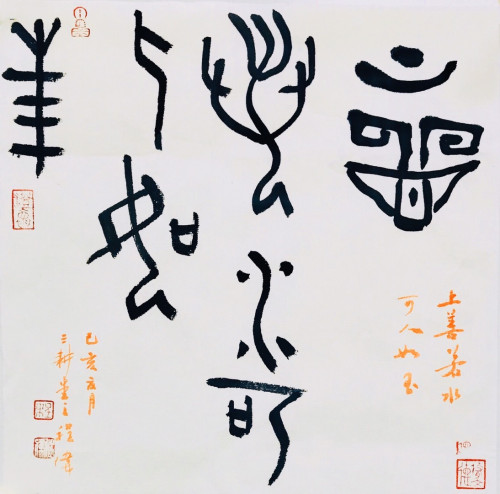 上善
若水可
人如
玉
上善若水
可人如玉
己亥月
三耕堂主程